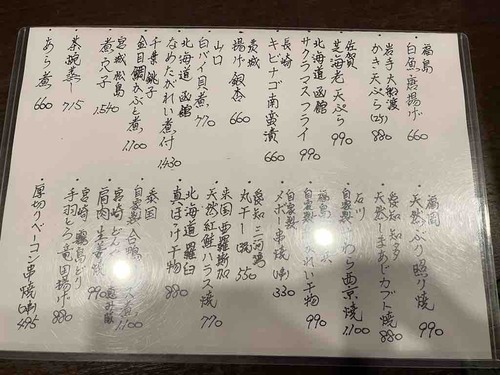 福島
白魚唐揚げ 660
岩手 大船渡
かき天ぷら(2ヶ) 880
佐賀
芝海老天ぷら 990
北海道 函館
サクラマスフライ 990
長崎
キビナゴ南蛮漬 660
茨城
揚げ銀杏 660
山口
白バイ貝煮 770
北海道 函館
なめたがれい煮付 1430
千葉 銚子
金目鯛かぶと煮 1,100
宮城 松島
煮穴子 1,540
茶碗蒸し 715
あら煮 660
福岡
天然ぶり照り焼 990
愛知 知多
天然しまあじカブト焼 880
石川
自家製 さわら西京焼 1,100
福島
自家製 れい干物 990
自家製
メボソ串焼(1本) 330
愛知 三河湾
丸干し 550
米国 西羅斯加
天然紅鮭ハラス焼 770
北海道 羅臼
真ほっけ干物 880
泰国
自家製 合鴨 ス煮 1,100
宮崎
肩肉生姜焼 990
宮崎 霧島どり
手羽とろ竜田揚げ 880
厚切りベーコン串焼(1本) 495